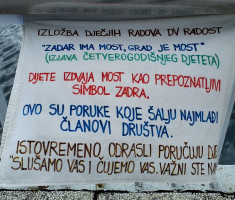 IZLOŽBA DJEČJIH RADOVA DV RADOST
"ZADAR IMA MOST, GRAD JE MOST"
(IZJAVA ČETVEROGODIŠNJEG DJETETA)
DIJETE IZDVAJA MOST KAO PREPOZNATLJIVI
SIMBOL ZADRA.
OVO SU PORUKE KOJE ŠALJU NAJMLAĐI
ČLANOVI DRUŠTVA.
ISTOVREMENO, ODRASLI PORUČUJU
"SLUŠAMO VAS I ČUJEMO VAS. VAŽNI STE